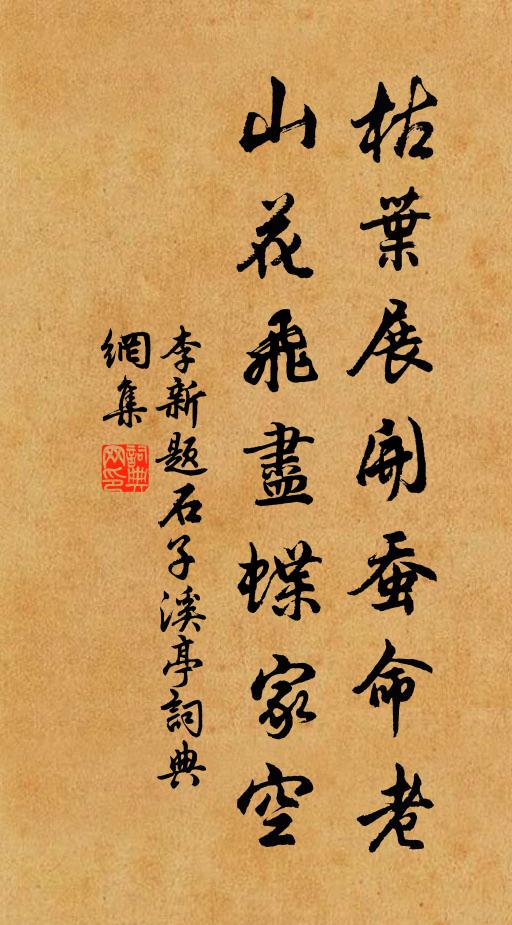 枯葉展開蚕命老
山花飛盡蝶家空
李新題石子溪亭詞典
網集
詞典
网印